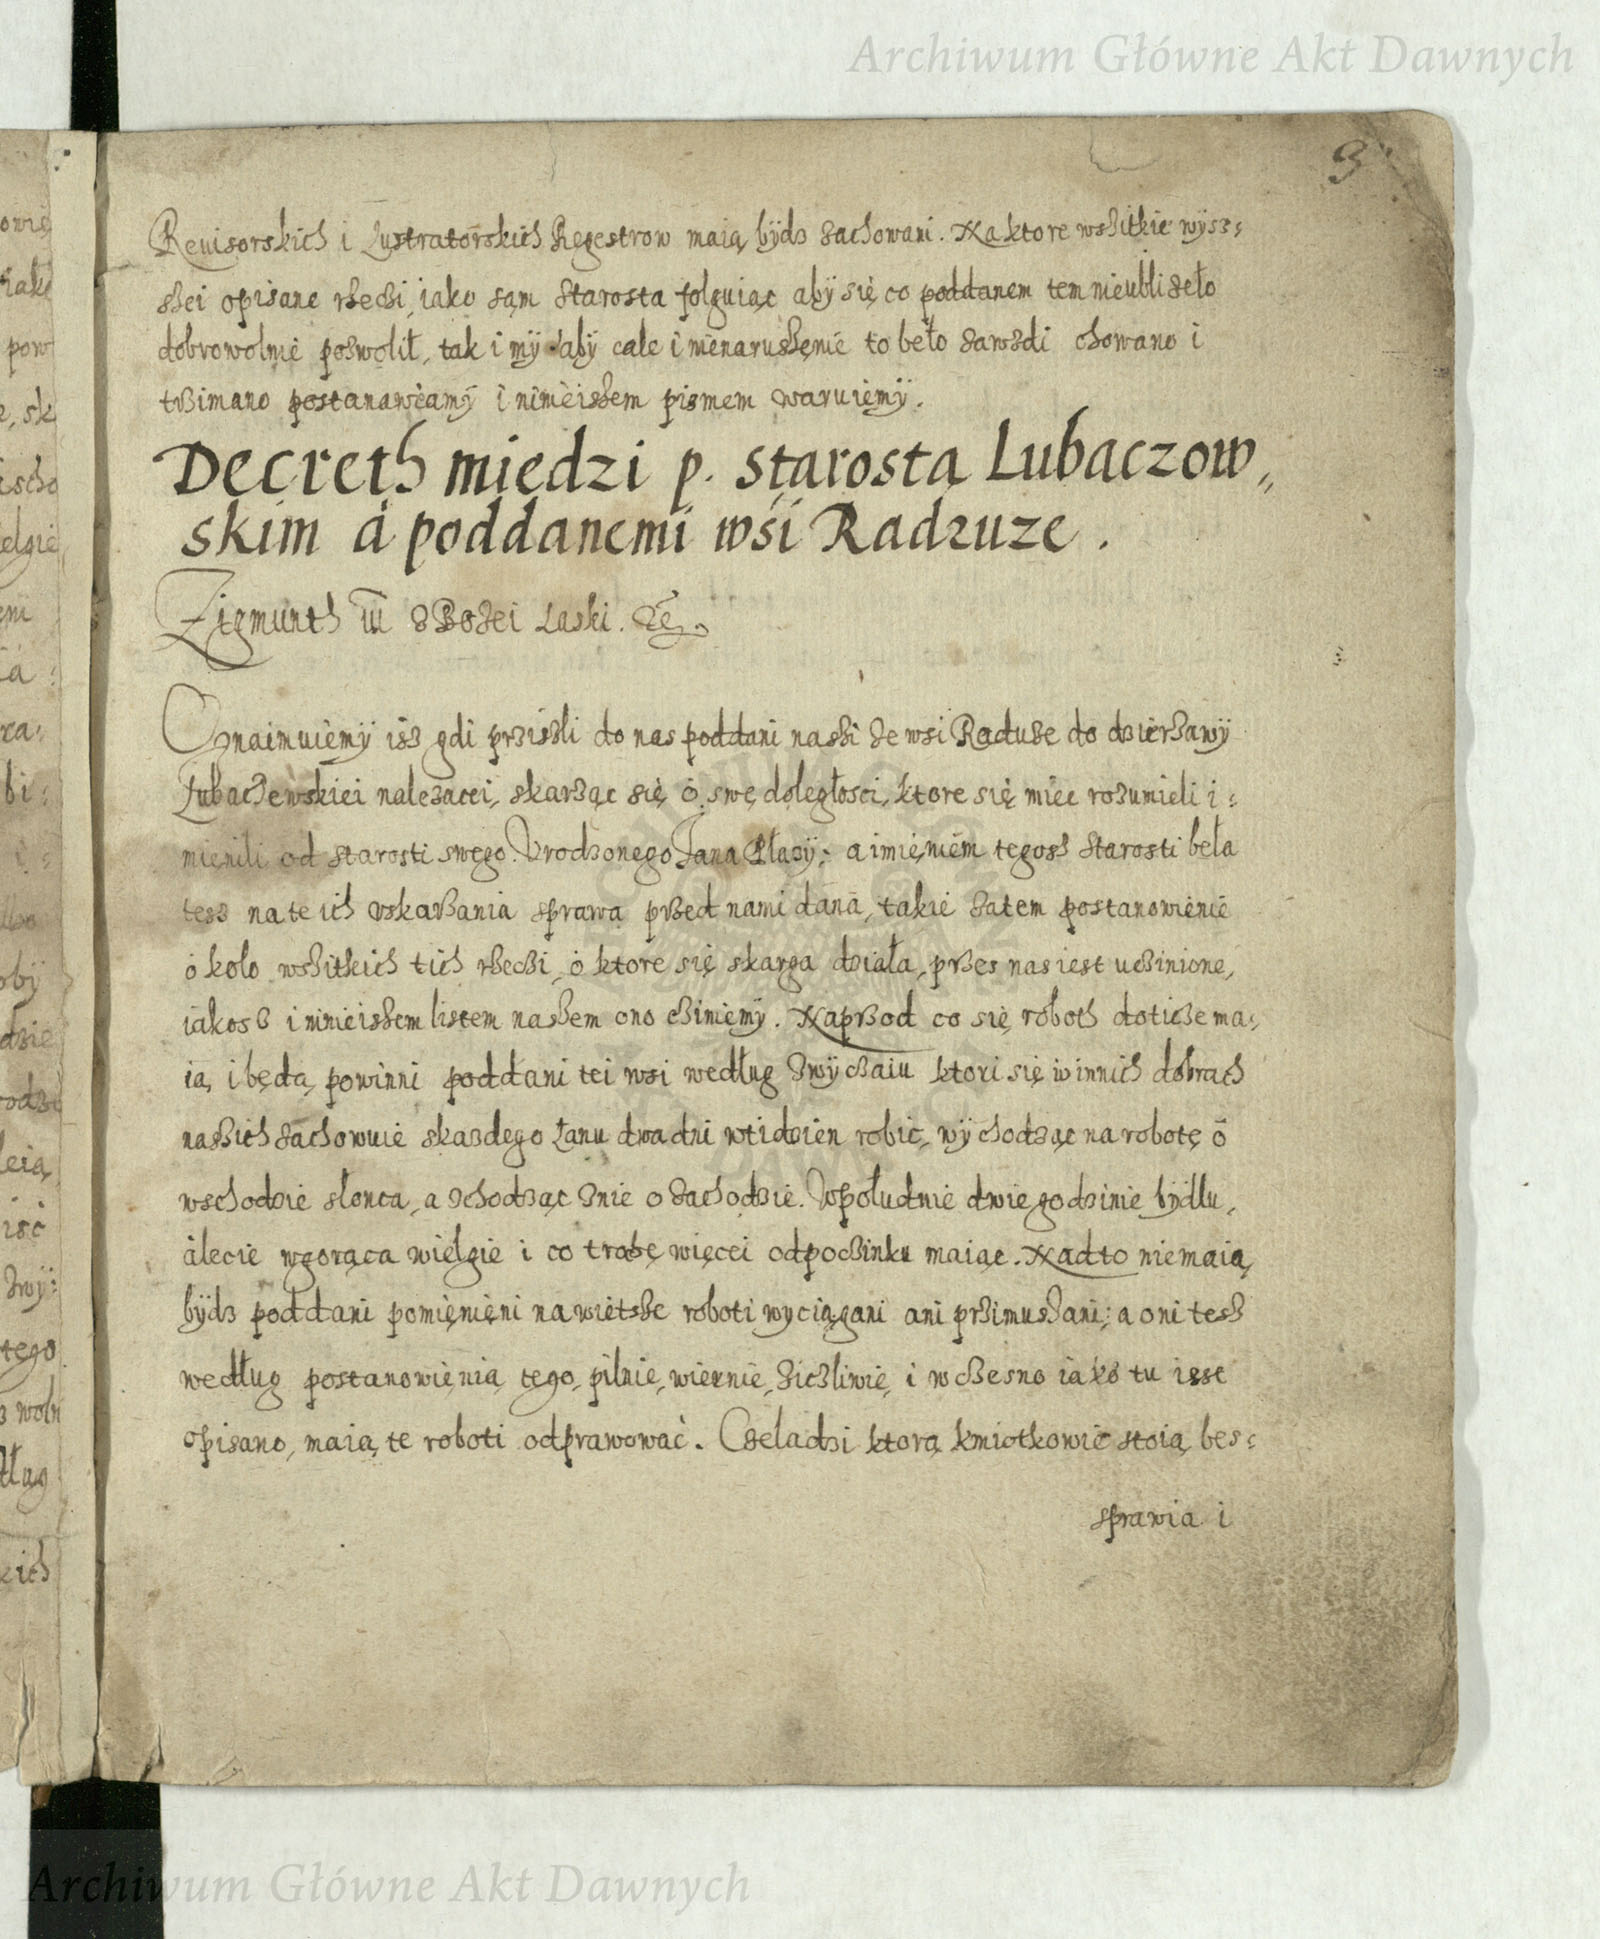 Archiwum Główne Akt Dawnych
9
Reuisorskich i Lustratorskich Regestrow maią bydz zachowani. Na ktore wszitkie wysz:
szei opisane rzeczi, iako sąm Starosta folguiąc aby się co poddanem tem nieubliżeło
dobrowolnie pozwolił, tak i mÿ aby cale i nienaruszenie to beło zawzdi chowano i
trzimano postanawiamÿ i ninieiszem pismem waruiemÿ.
Decreth miedzi p. starostą Lubaczow„
skim á poddanemi wśi Radzuze.
Zigmunth III z Bożei Łaski. &c.
Oznaimuiemÿ isz gdi prziszli do nas poddani naszi ze wsi Raduze do dzierzawÿ
Lubaczewskiei nalezącei, skarząc się o swę dolęgłosci, ktore się miec rozumieli i:
mienili od starosti swego Vrodzonego Jana Płazÿ; a imięniem tegosz Starosti beła
tesz na te ich vskarzania sprawa przed nami dana, takie zatem postanowienie
około wszitkich tich rzeczi, o ktore się skarga działa, przes nas iest uczinione,
iakosz i ninieiszem listem naszem ono cziniemÿ. Naprzod co się roboth doticze ma:,
ią, i będą powinni poddani tei wsi według zwÿczaiu ktori się w innich dobrach
naszich zachowuie skazdego Łanu dwa dni wtidzien robic, wÿchodząc na robotę o
wschodzie słonca, a zchodząc znie o zachodzie. Wpołudnie dwie godzinie bÿdłu,
alecie wgorąca wielgie i co trochę więcei odpoczinku maiąc. Nadto niemaią
bÿdz poddani pomięnieni na wietsze roboti wyciągani ani przimuszani; a oni tesz
według postanowienia tego, pilnie, wiernie, życzliwie, i wczesno iako tu iest
opisano, maią te roboti odprawować. Czeladzi ktorą kmiotkowie stoią bes:
sprawia i
Archiwum Główne Akt Dawnych